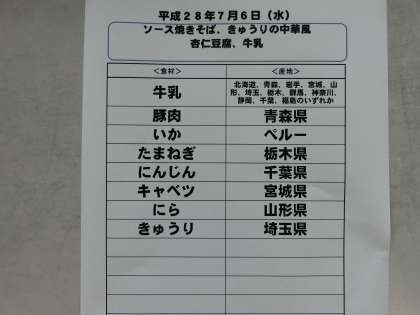 平成２８年７月６日（水）
ソース焼きそば、きゅうりの中華風
杏仁豆腐、牛乳
＜食材＞ ＜産地＞
牛乳 北海道、青森、岩手、宮城、山
形、埼玉、栃木、群馬、神奈川、
静岡、千葉、福島のいずれか
豚肉 青森県
いか ペルー
たまねぎ 栃木県
にんじん 千葉県
キャベツ 宮城県
にら 山形県
きゅうり 埼玉県